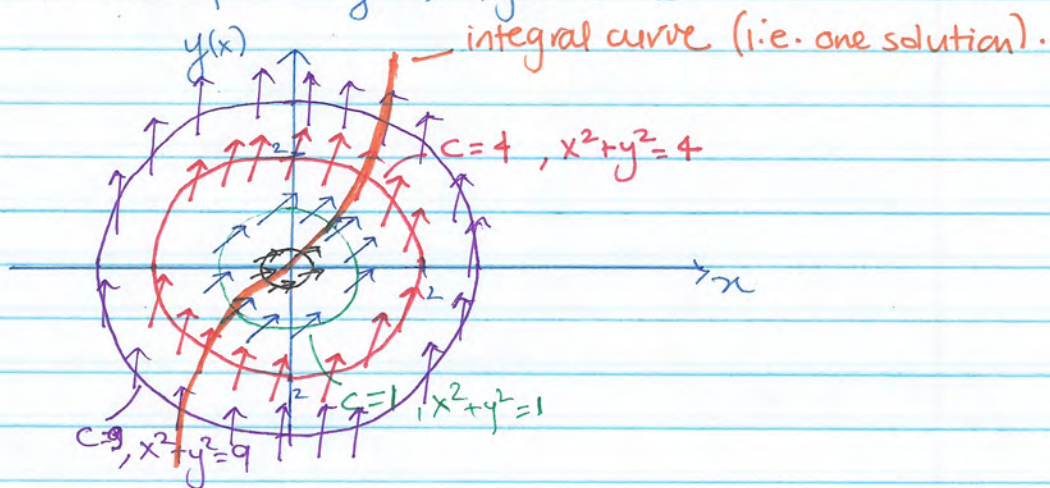 y(x)
integral curve (i.e. one solution).
2
c=4, x²+y²=4
x
2
2
c=1, x²+y²=1
c=9, x²+y²=9